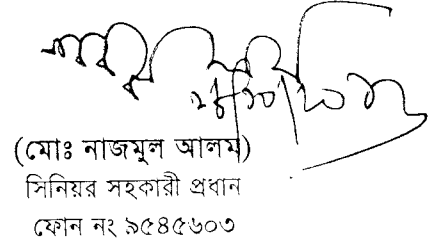 (মোঃ নাজমুল আলম)
সিনিয়র সহকারী প্রধান
ফোন নং ৯৫৪৫৬০৩